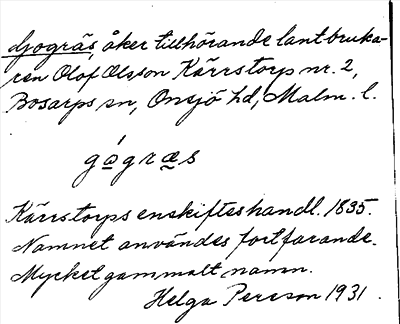 djogräs, åker tillhörande lantbruka-
ren Olof Olsson Kärrstorp nr. 2,
Bosarps sn, Onsjö hd, Malm. l.
gógræs
Kärrstorps enskifteshandl. 1835.
Namnet användes fortfarande.
Mycket gammalt namn.
Helga Persson 1931.